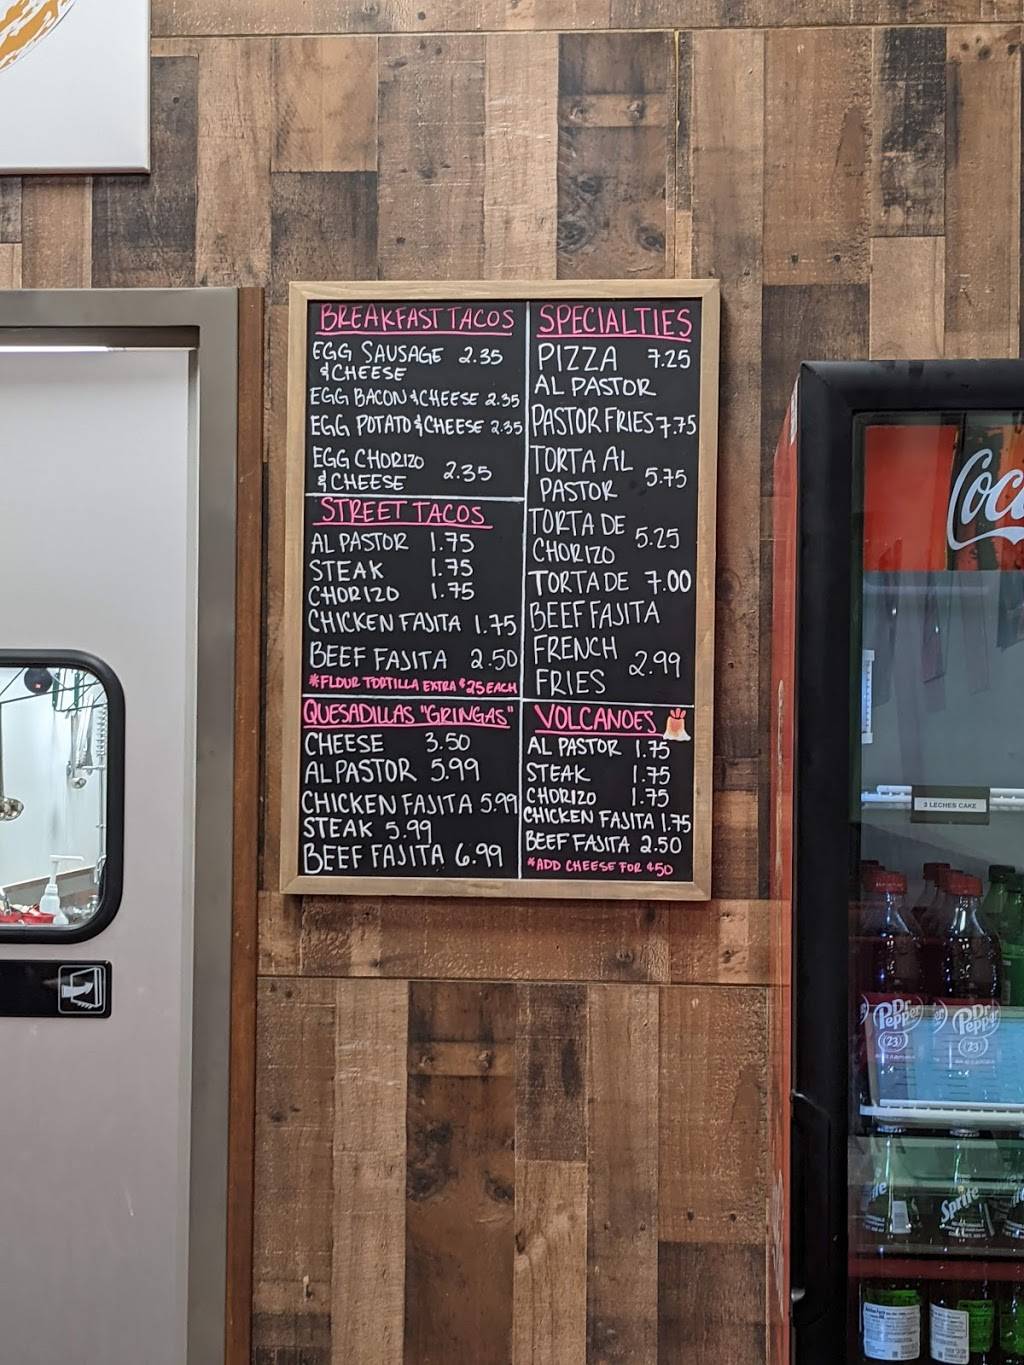 BREAKFAST TACOS
EGG SAUSAGE 2.35
&CHEESE
EGG BACON &CHEESE 2.35
EGG POTATO &CHEESE 2.35
EGG CHORIZO
& CHEESE 2.35
STREET TACOS
AL PASTOR 1.75
STEAK 1.75
CHORIZO 1.75
CHICKEN FAJITA 1.75
BEEF FAJITA 2.50
*FLOUR TORTILLA EXTRA $.25 EACH
QUESADILLAS "GRINGAS"
CHEESE 3.50
AL PASTOR 5.99
CHICKEN FAJITA 5.99
STEAK 5.99
BEEF FAJITA 6.99
SPECIALTIES
PIZZA 7.25
AL PASTOR
PASTOR FRIES 7.75
TORTA AL
PASTOR 5.75
TORTA DE
CHORIZO 5.25
TORTA DE 7.00
BEEF FAJITA
FRENCH
FRIES 2.99
VOLCANOES
AL PASTOR 1.75
STEAK 1.75
CHORIZO 1.75
CHICKEN FAJITA 1.75
BEEF FAJITA 2.50
*ADD CHEESE FOR $.50
Coc
3 LECHES CAKE
Dr Pepper
(23)
Dr Pepper
(23)
Sprite